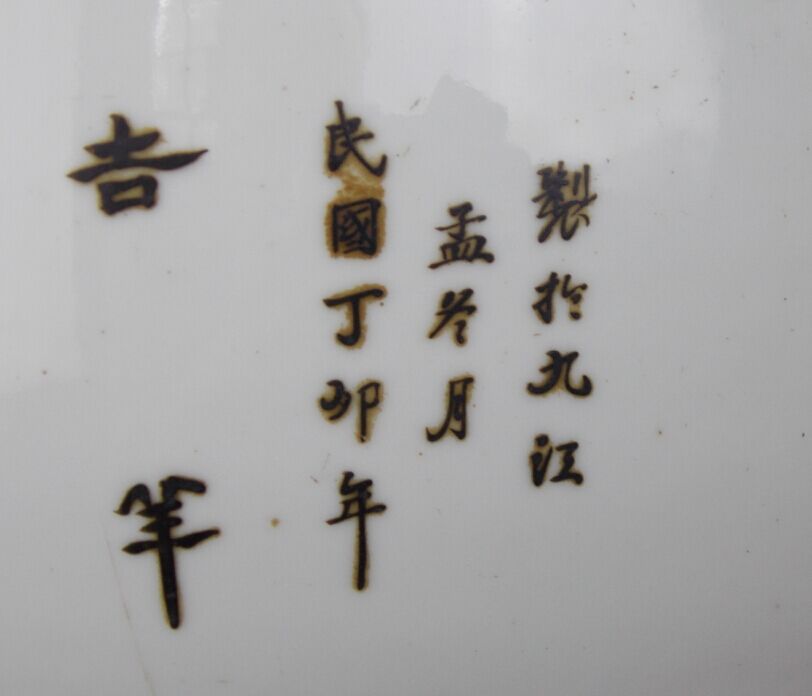 吉羊
民國丁卯年
孟冬月
製於九江